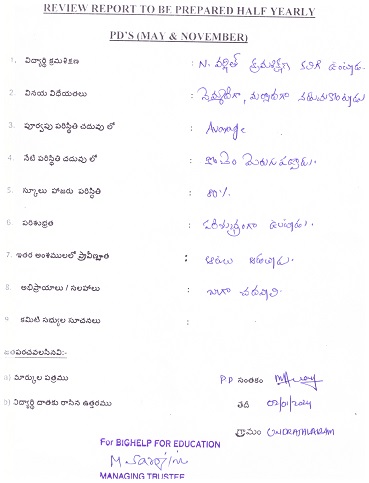 REVIEW REPORT TO BE PREPARED HALF YEARLY
PD'S (MAY & NOVEMBER)
1. విద్యార్థి క్రమశిక్షణ : N. వర్షిత్ క్రమశిక్షణ కలిగి ఉంటాడు.
2. వినయ విధేయతలు : నెమ్మదిగా, మర్యాదగా నడుచుకొంటాడు
3. పూర్వపు పరిస్థితి చదువు లో : Average
4. నేటి పరిస్థితి చదువు లో : కొంచెం మెరుగుపడ్డాడు.
5. స్కూలు హాజరు పరిస్థితి : 80%
6. పరిశుభ్రత : పరిశుభ్రంగా ఉంటాడు.
7. ఇతర అంశములలో ప్రావీణ్యత : ఆటలు ఆడతాడు.
8. అభిప్రాయాలు / సలహాలు : బాగా చదవాలి.
9. కమిటి సభ్యుల సూచనలు :
జతపరచవలసినవి:-
a) మార్కుల పత్రము P.D సంతకం
b) విద్యార్థి దాతకు రాసిన ఉత్తరము తది 02/01/2024
గ్రామం UNDRAJAVARAM
For BIGHELP FOR EDUCATION
M. Sarojini
MANAGING TRUSTEE